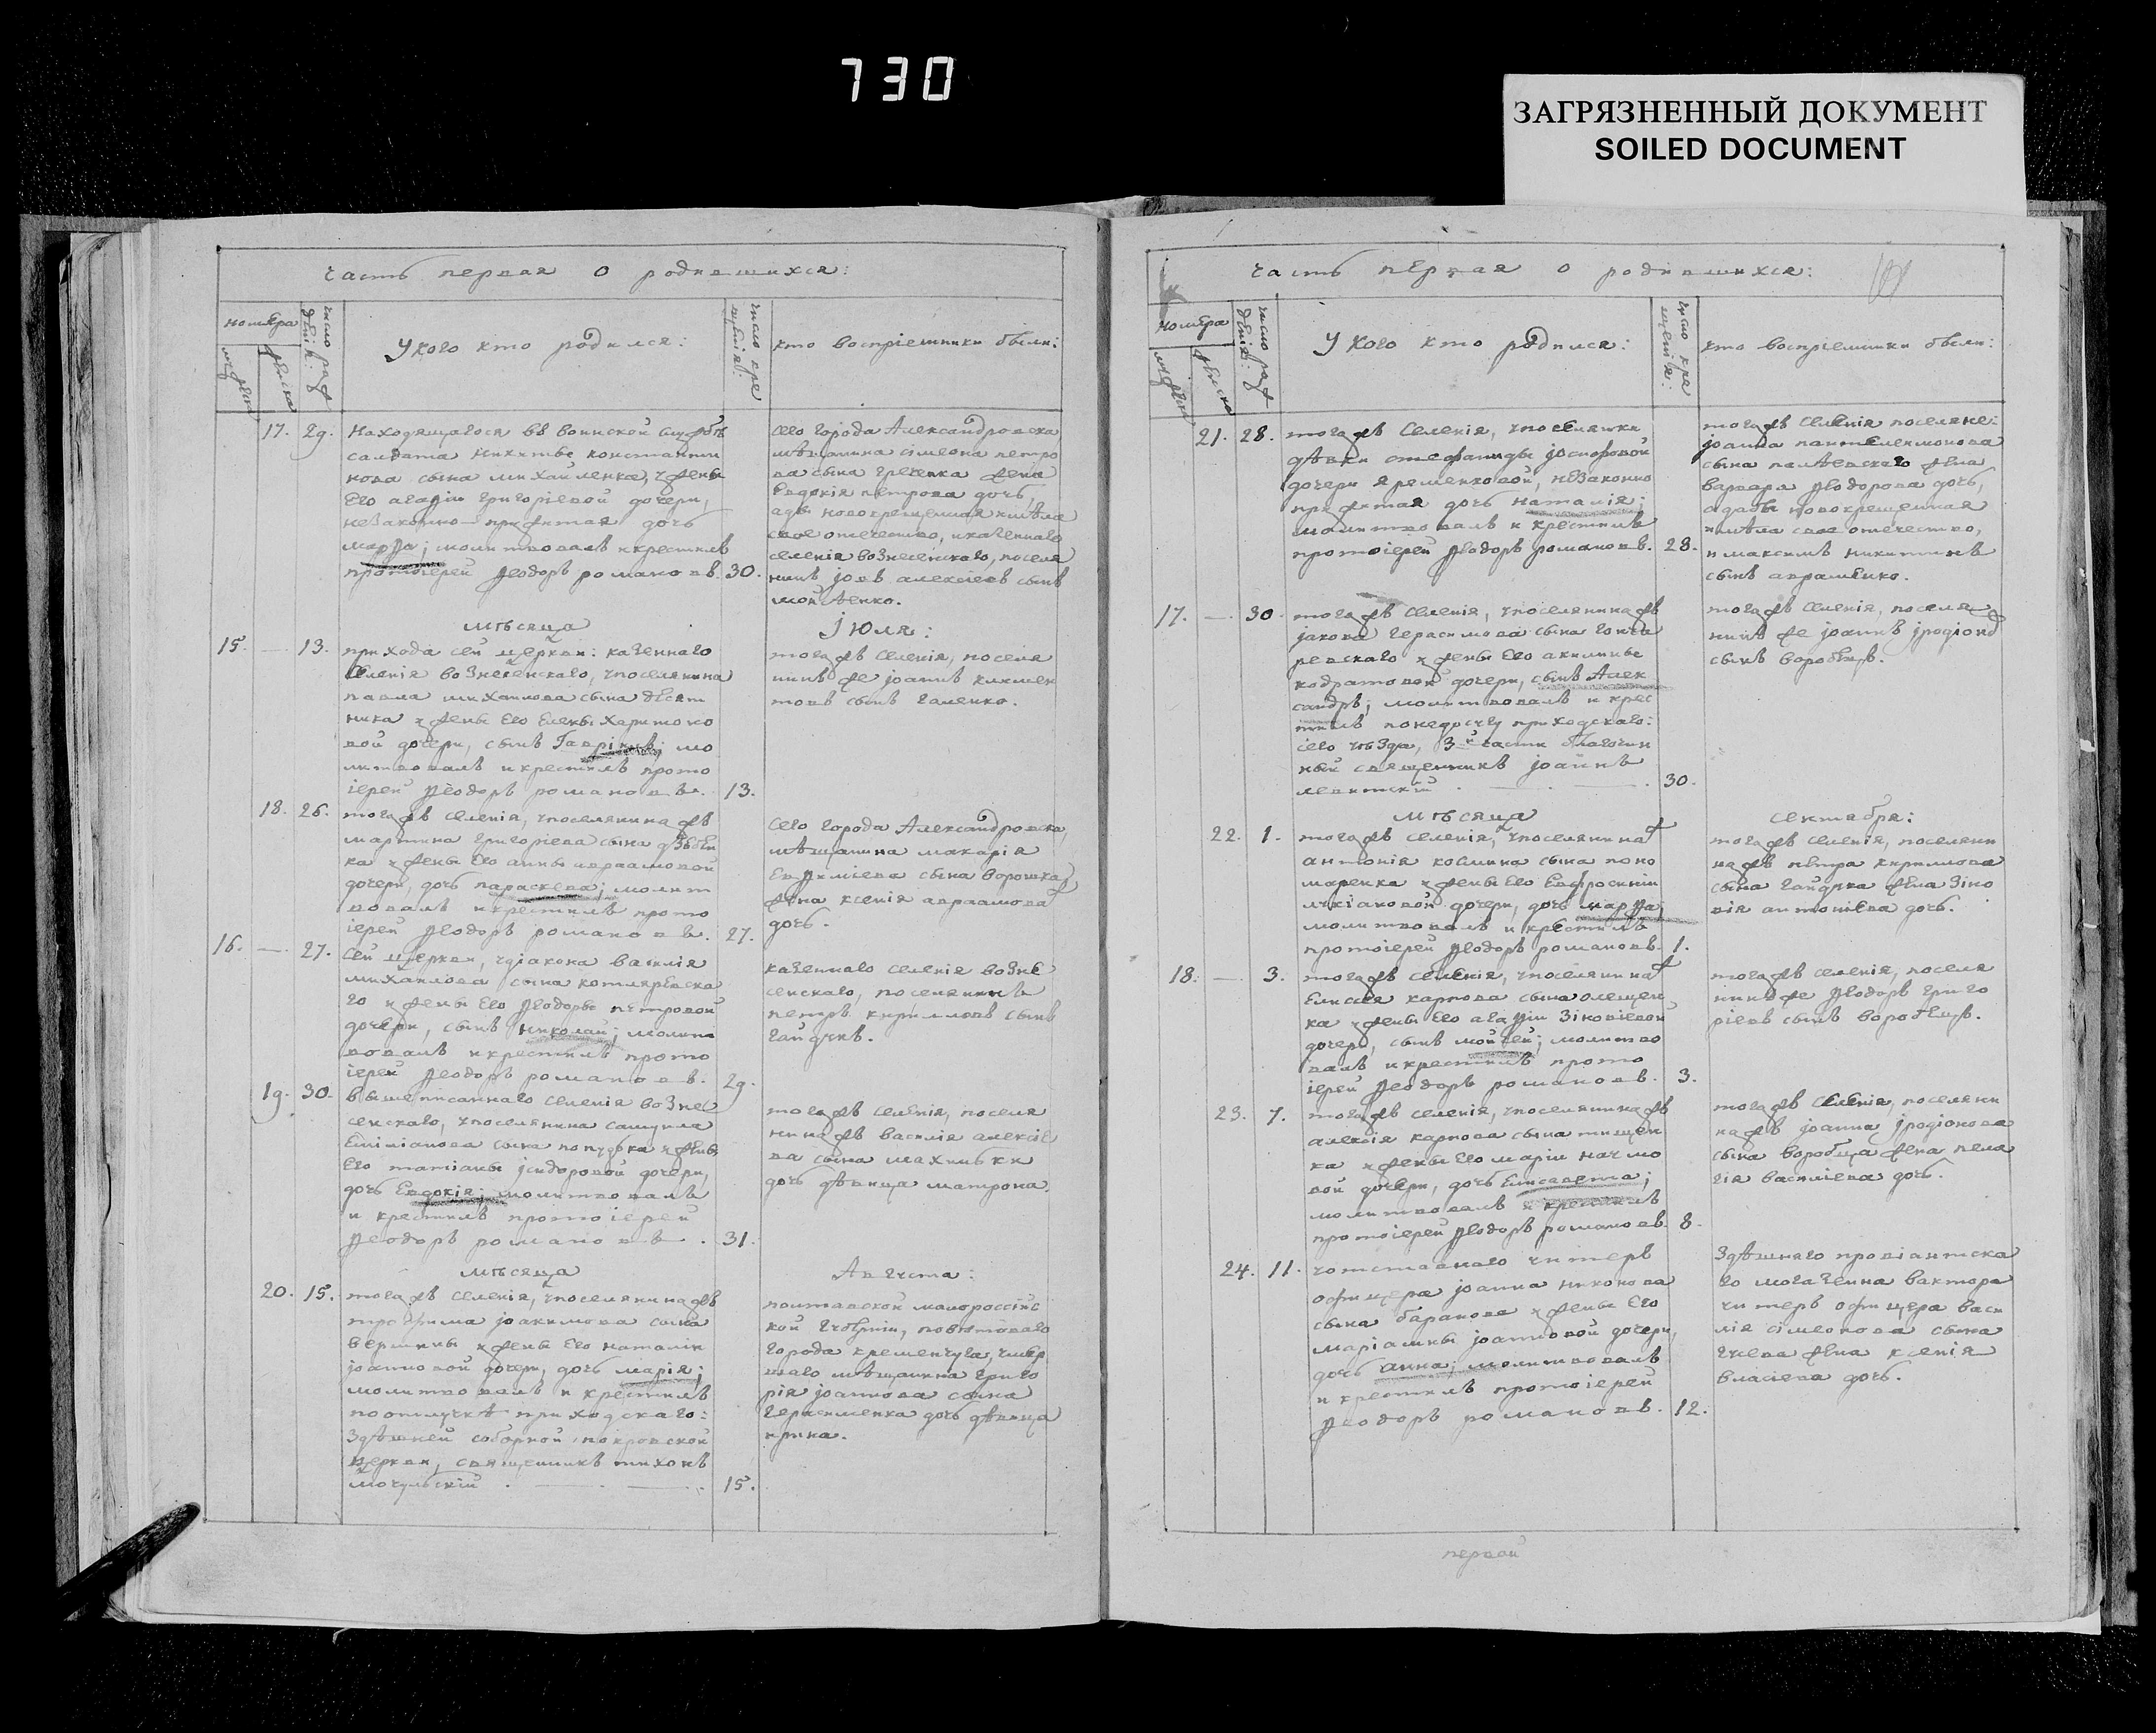 730
ЗАГРЯЗНЕННЫЙ ДОКУМЕНТ
SOILED DOCUMENT
часть первая о родившихся:
номера
У кого кто родился:
кто воспріемники были:
17. 29. Находящагося въ воинской службѣ
салдата никиты константи
нова сына михайленка, у жены
Его агафіи григоріевой дочери,
незаконно прижитая дочь
марфа; молитвовалъ и крестилъ
протоіерей Ѳеодоръ романовъ. 30.
сего города Александровска
мѣщанина сімеона петро
ва сына гречёнка жена
Евдокія петрова дочь,
своё отечество, и казённаго
селенія вознесенскаго, поселя
нинъ іовъ алексіевъ сынъ
мѣсяца Іюля:
15. — 13. прихода сей церкви: казеннаго
селенія вознесенскаго, у поселянина
павла михаилова сына десят
ника у жены Его Елены харитоно
вой дочери, сынъ Гавріилъ; мо
литвовалъ и крестилъ прото
іерей Ѳеодоръ романовъ. 13.
тогожъ селенія, поселя
нинъ же іоаннъ климен
товъ сынъ галенко.
18. 26. тогожъ селенія, у поселянина жъ
мартина григоріева сына
ка у жены Его анны авраамовой
дочери, дочь параскева; молит
вовалъ и крестилъ прото
іерей Ѳеодоръ романовъ. 27.
сего города Александровска,
мѣщанина макарія
Евѳиміева сына ворошка
жена ксенія авраамова
дочь.
16. — 27. сей церкви, у діакона василія
михаилова сына котляревска
го у жены Его Ѳеодоры петровой
дочери, сынъ николай; молит
вовалъ и крестилъ прото
іерей Ѳеодоръ романовъ. 29.
казеннаго селенія возне
сенскаго, поселянинъ
петръ кирилловъ сынъ
гайдукъ.
19. 30. вышеписаннаго селенія возне
сенскаго, у поселянина самуила
Еміліанова сына у жены
Его татіаны ісидоровой дочери,
дочь Евдокія; молитвовалъ
и крестилъ протоіерей
Ѳеодоръ романовъ. 31.
тогожъ селенія, поселя
нина жъ василія алексіе
ва сына махиньки
дочь дѣвица матрона.
мѣсяца Августа:
20. 15. тогожъ селенія, у поселянина жъ
трофима іоакимова сына
вершины у жены Его наталіи
іоанновой дочери, дочь марія;
молитвовалъ и крестилъ
по отлучкѣ приходскаго:
здѣшней соборной покровской
церкви, священникъ тихонъ
мочульскій 15.
полтавской малороссійс
кой губерніи, повѣтоваго
города кременчуга, умер
шаго мѣщанина григо
рія іоаннова сына
герасименка дочь дѣвица
ирина.
часть первая о родившихся:
номера
У кого кто родился:
кто воспріемники были:
21. 28. тогожъ селенія, у поселянки
дѣвки стефаниды іосифовой
дочери яременковой, незаконно
прижитая дочь наталія;
молитвовалъ и крестилъ
протоіерей Ѳеодоръ романовъ. 28.
тогожъ селенія поселяне:
іоанна пантелеимонова
сына жена
варвара Ѳеодорова дочь,
своё отечество,
и максимъ никитинъ
сынъ авраменко.
17. — 30. тогожъ селенія, у поселянина жъ
іакова герасимова сына гонча
ревскаго у жены Его акилины
кодратовой дочери, сынъ Алек
сандръ; молитвовалъ и крес
тилъ по недосугу приходскаго:
сего уѣзда, 3й части благочин
ный священникъ іоаннъ
левитскій 30.
тогожъ селенія, поселя
нинъ же іоаннъ іродіоно
сынъ воробецъ.
мѣсяца сентября:
22. 1. тогожъ селенія, у поселянина ж
антонія космина сына поно
маренка у жены Его Евфросиніи
лукіановой дочери, дочь марфа;
молитвовалъ и крестилъ
протоіерей Ѳеодоръ романовъ. 1.
тогожъ селенія, поселяни
на жъ петра кирилова
сына гайдука жена зіно
вія антоніева дочь.
18. — 3. тогожъ селенія, у поселянина ж
Елисея карпова сына олещен
ка у жены Его агафіи зіновіевой
дочери, сынъ моисей; молитво
валъ и крестилъ прото
іерей Ѳеодоръ романовъ. 3.
тогожъ селенія, поселя
нинъ же Ѳеодоръ григо
ріевъ сынъ воробецъ.
23. 7. тогожъ селенія, у поселянина жъ
алексія карпова сына тищен
ка у жены Его маріи наумо
вой дочери, дочь Елисавета;
молитвовалъ и крестилъ
протоіерей Ѳеодоръ романовъ. 8.
тогожъ селенія, поселяни
на жъ іоанна іродіонова
сына воробца жена пела
гія василіева дочь.
24. 11. у отставнаго унтеръ
офицера іоанна никонова
сына баранова у жены Его
маріамны іоанновой дочери,
дочь анна; молитвовалъ
и крестилъ протоіерей
Ѳеодоръ романовъ. 12.
здѣшняго провіантска
го магазеина вахтора
унтеръ офицера васи
лія сімеонова сына
гусева жена ксенія
власіева дочь.
первой